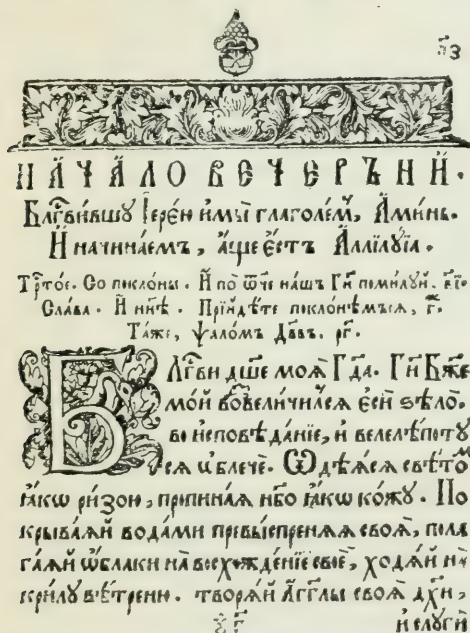 н҃з
НАЧА́ЛО ВЕЧЕ́РЪНИ.
Бл҃гви́вшꙋ Іере́ю и҆мы̀ глаго́лем, А҆ми́нь.
И҆ начина́емъ, а҆́ще є҆́стъ А҆ллилꙋ́їа.
Тр҃то́е. Со покло́ны. И҆ по ѿ҆́че на́шъ Гд҃и поми́лꙋй. в҃і.
Сла́ва. И҆ нн҃ѣ. Прїиди́те поклони́мъсѧ, г҃.
Та́же, ѱало́мъ Дв҃въ. рг҃.
Бл҃гви дш҃е моѧ̀ Гд҃а. Гд҃и Бж҃е
мо́й возвели́чилсѧ є҆сѝ ѕѣло̀.
во и҆сповѣ́данїе, и҆ велелѣ́потꙋ
сѧ ѡ҆блече́. Ѡ҆дѣ́ѧсѧ свѣ́том
ꙗ҆́кѡ ри́зою, пропина́ѧ нб҃о ꙗ҆́кѡ ко́жꙋ. По
крыва́ѧй вода́ми превы́спреннѧѧ своѧ̀, пола
га́ѧй ѡ҆́блаки на восхожде́нїе своѐ, ходѧ́й на
крилꙋ̀ вѣ́трени. творѧ́й а҆́гг҃лы своѧ̀ дх҃и,
и҆ слꙋги̑